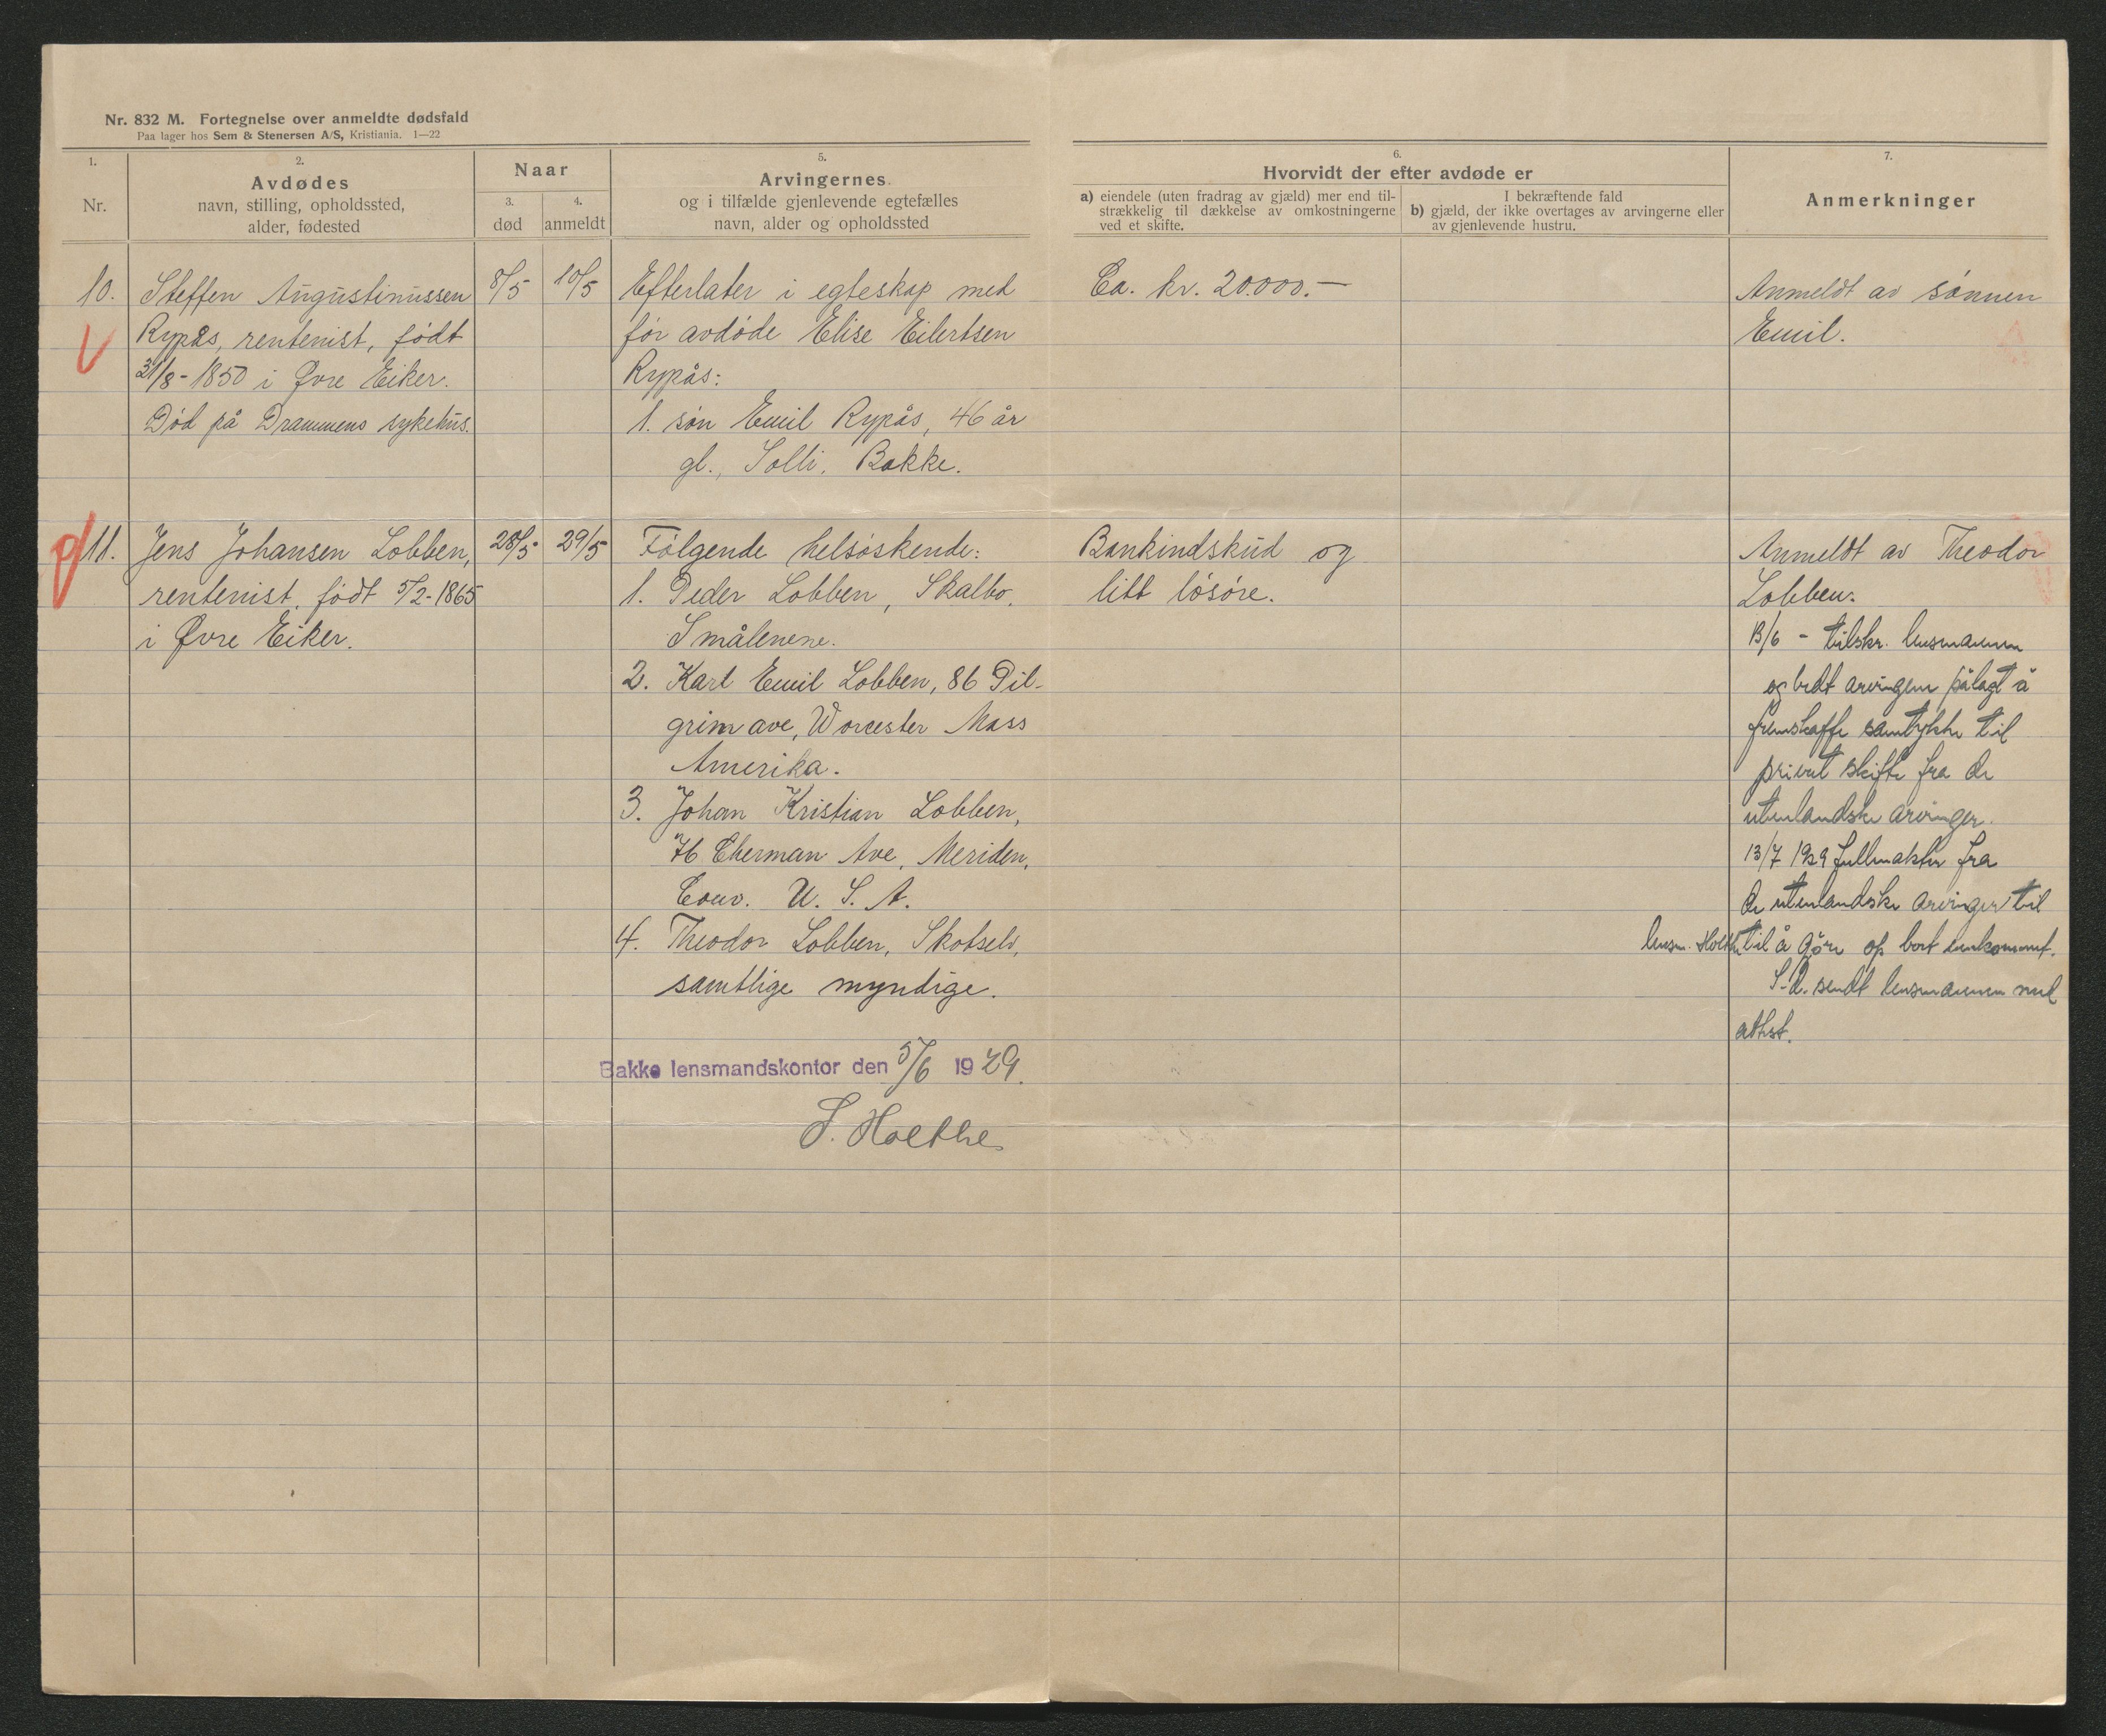 Nr. 832 M. Fortegnelse over anmeldte dødsfald
Paa lager hos Sem & Stenersen A/S, Kristiania. 1—22
1.
Nr.
2.
Avdødes
navn, stilling, opholdssted,
alder, fødested
Naar
3.
død
4.
anmeldt
5.
Arvingernes
og i tilfælde gjenlevende egtefælles
navn, alder og opholdssted
6.
Hvorvidt der efter avdøde er
a) eiendele (uten fradrag av gjæld) mer end til-
strækkelig til dækkelse av omkostningerne
ved et skifte.
I bekræftende fald
b) gjæld, der ikke overtages av arvingerne eller
av gjenlevende hustru.
7.
Anmerkninger
10.
Steffen Augustinussen
Rypås, rentenist, født
31/8-1850 i Øvre Eiker.
Død på Drammens sykehus.
8/5
10/5
Efterlater i egteskap med
før avdøde Elise Eilertsen
Rypås:
1. søn Emil Rypås, 46 år
gl., Solli, Bakke.
Ca. kr. 20.000.—
Anmeldt av sønnen
Emil.
11.
Jens Johansen Lobben,
rentenist, født 5/2-1865
i Øvre Eiker.
28/5
29/5
Følgende helsøskende:
1. Peder Lobben, Skalbo,
Smålenene.
2. Karl Emil Lobben, 86 Pil-
grim ave, Worcester Mass
Amerika.
3. Johan Kristian Lobben,
Eherman Ave, Meriden,
U. S. A.
4. Theodor Lobben, Skotselv,
samtlige myndige.
Bankindskud og
litt løsøre.
Anmeldt av Theodor
Lobben.
13/6 - tilskr. lensmannen
og bedt arvingene pålagt å
fremskaffe samtykke til
privat skifte fra de
utenlandske arvinger.
13/7 1929 fullmakter fra
de utenlandske arvinger til
lensm. Holthe til å gjøre op boet innkommet.
S.d. sendt lensmannen med
attest.
Bakke lensmandskontor den 5/6 1929.
S. Holthe